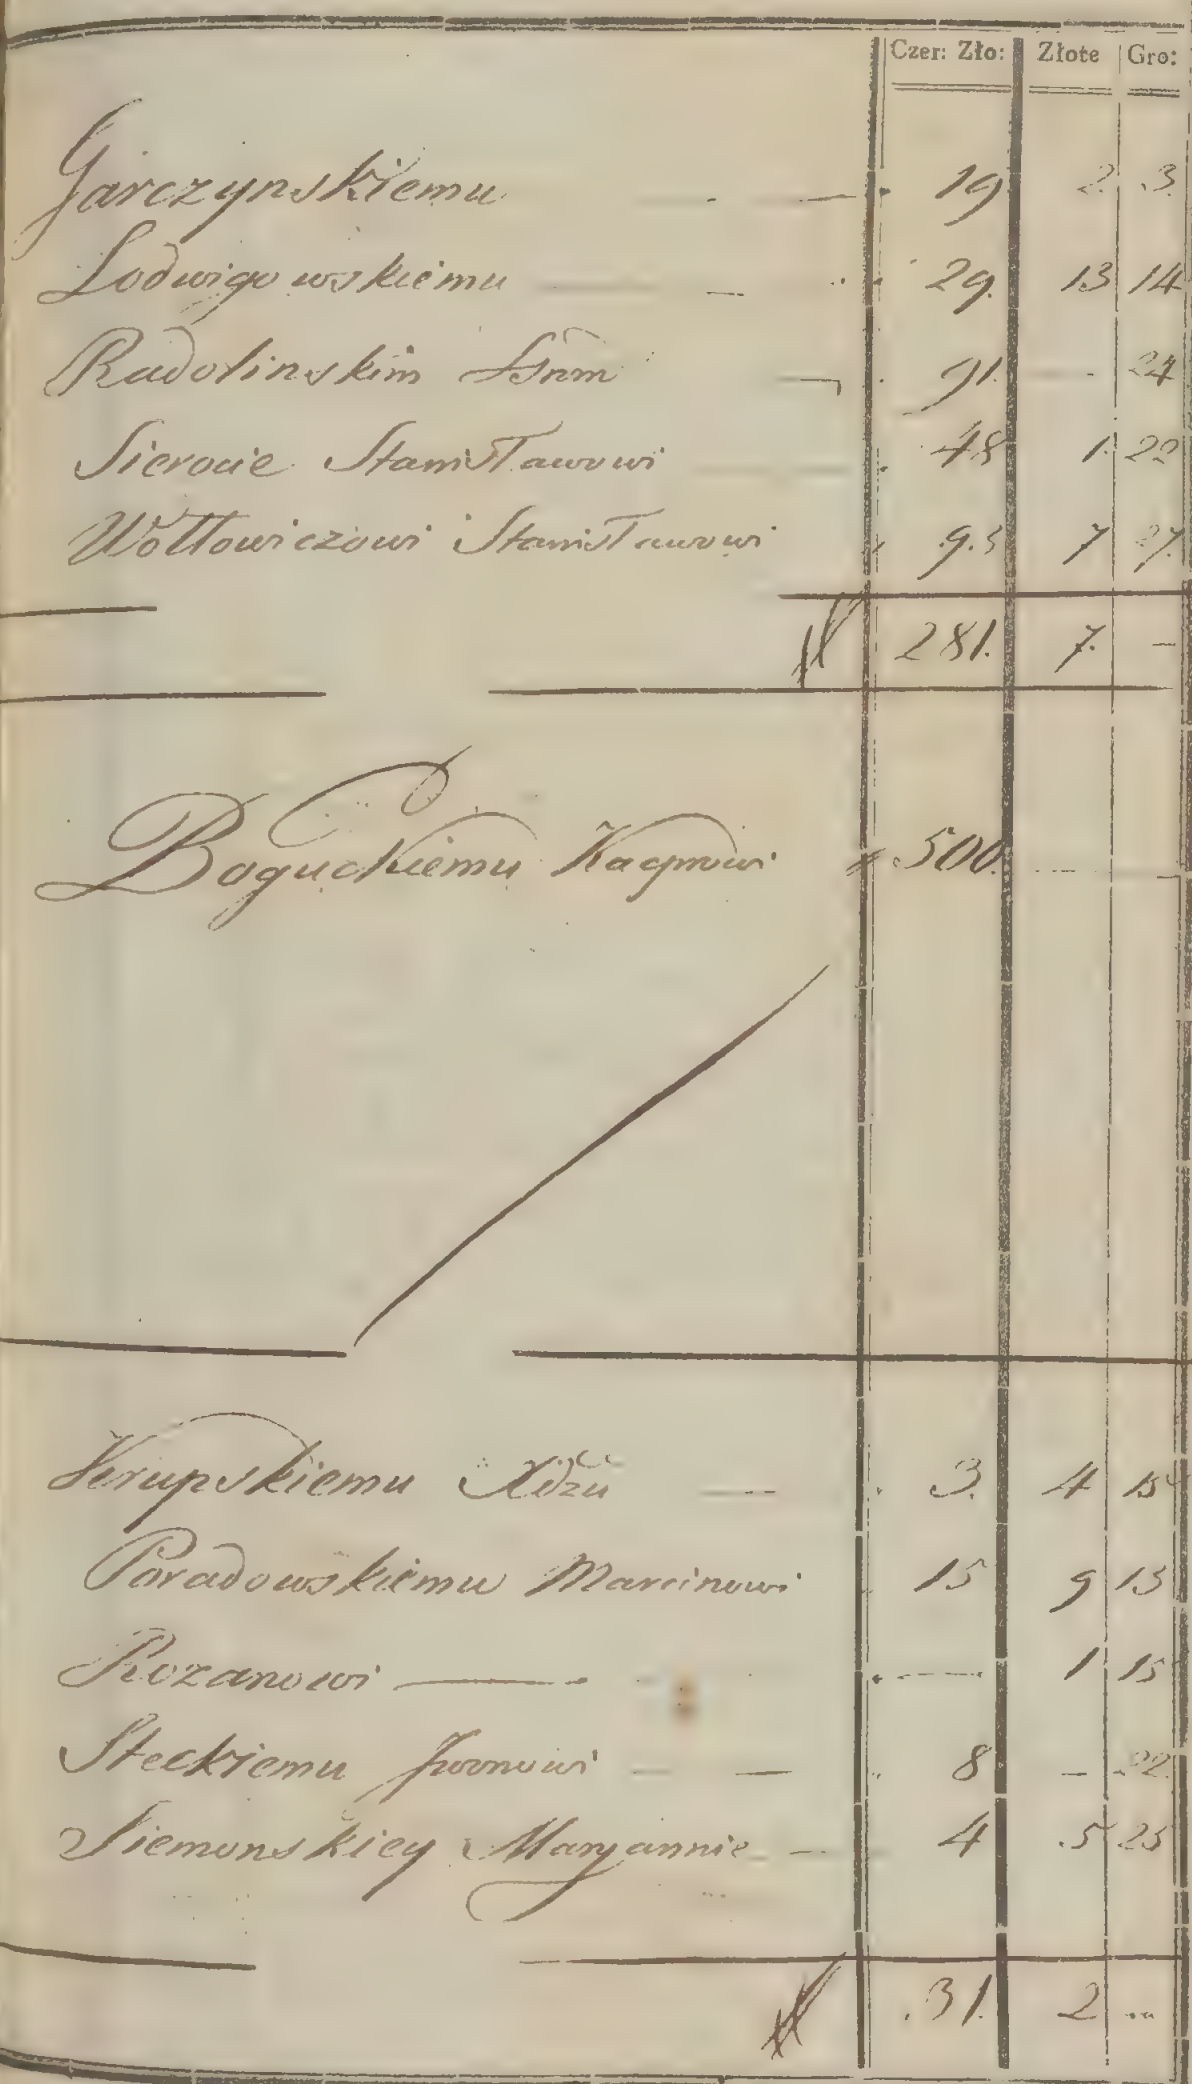 Czer: Zło: Złote Gro:
Garczynskiemu 19 2 3
Lodwigowskiemu 29. 13 14
Radolinskim 91. - 24
Sierocie Stanisławowi 48 1 22
Wołłowiczowi Stanisławowi 93 7 27.
281. 7. -
Boguckiemu Kacprowi 500.
Kerupskiemu Xdzu 3. 4 15
Paradowskiemu Marcinowi 15 9 13
Rozanowi - 1 15
Steckiemu 8 - 22
Siemonskiey Maryannie 4 5 25
31. 2